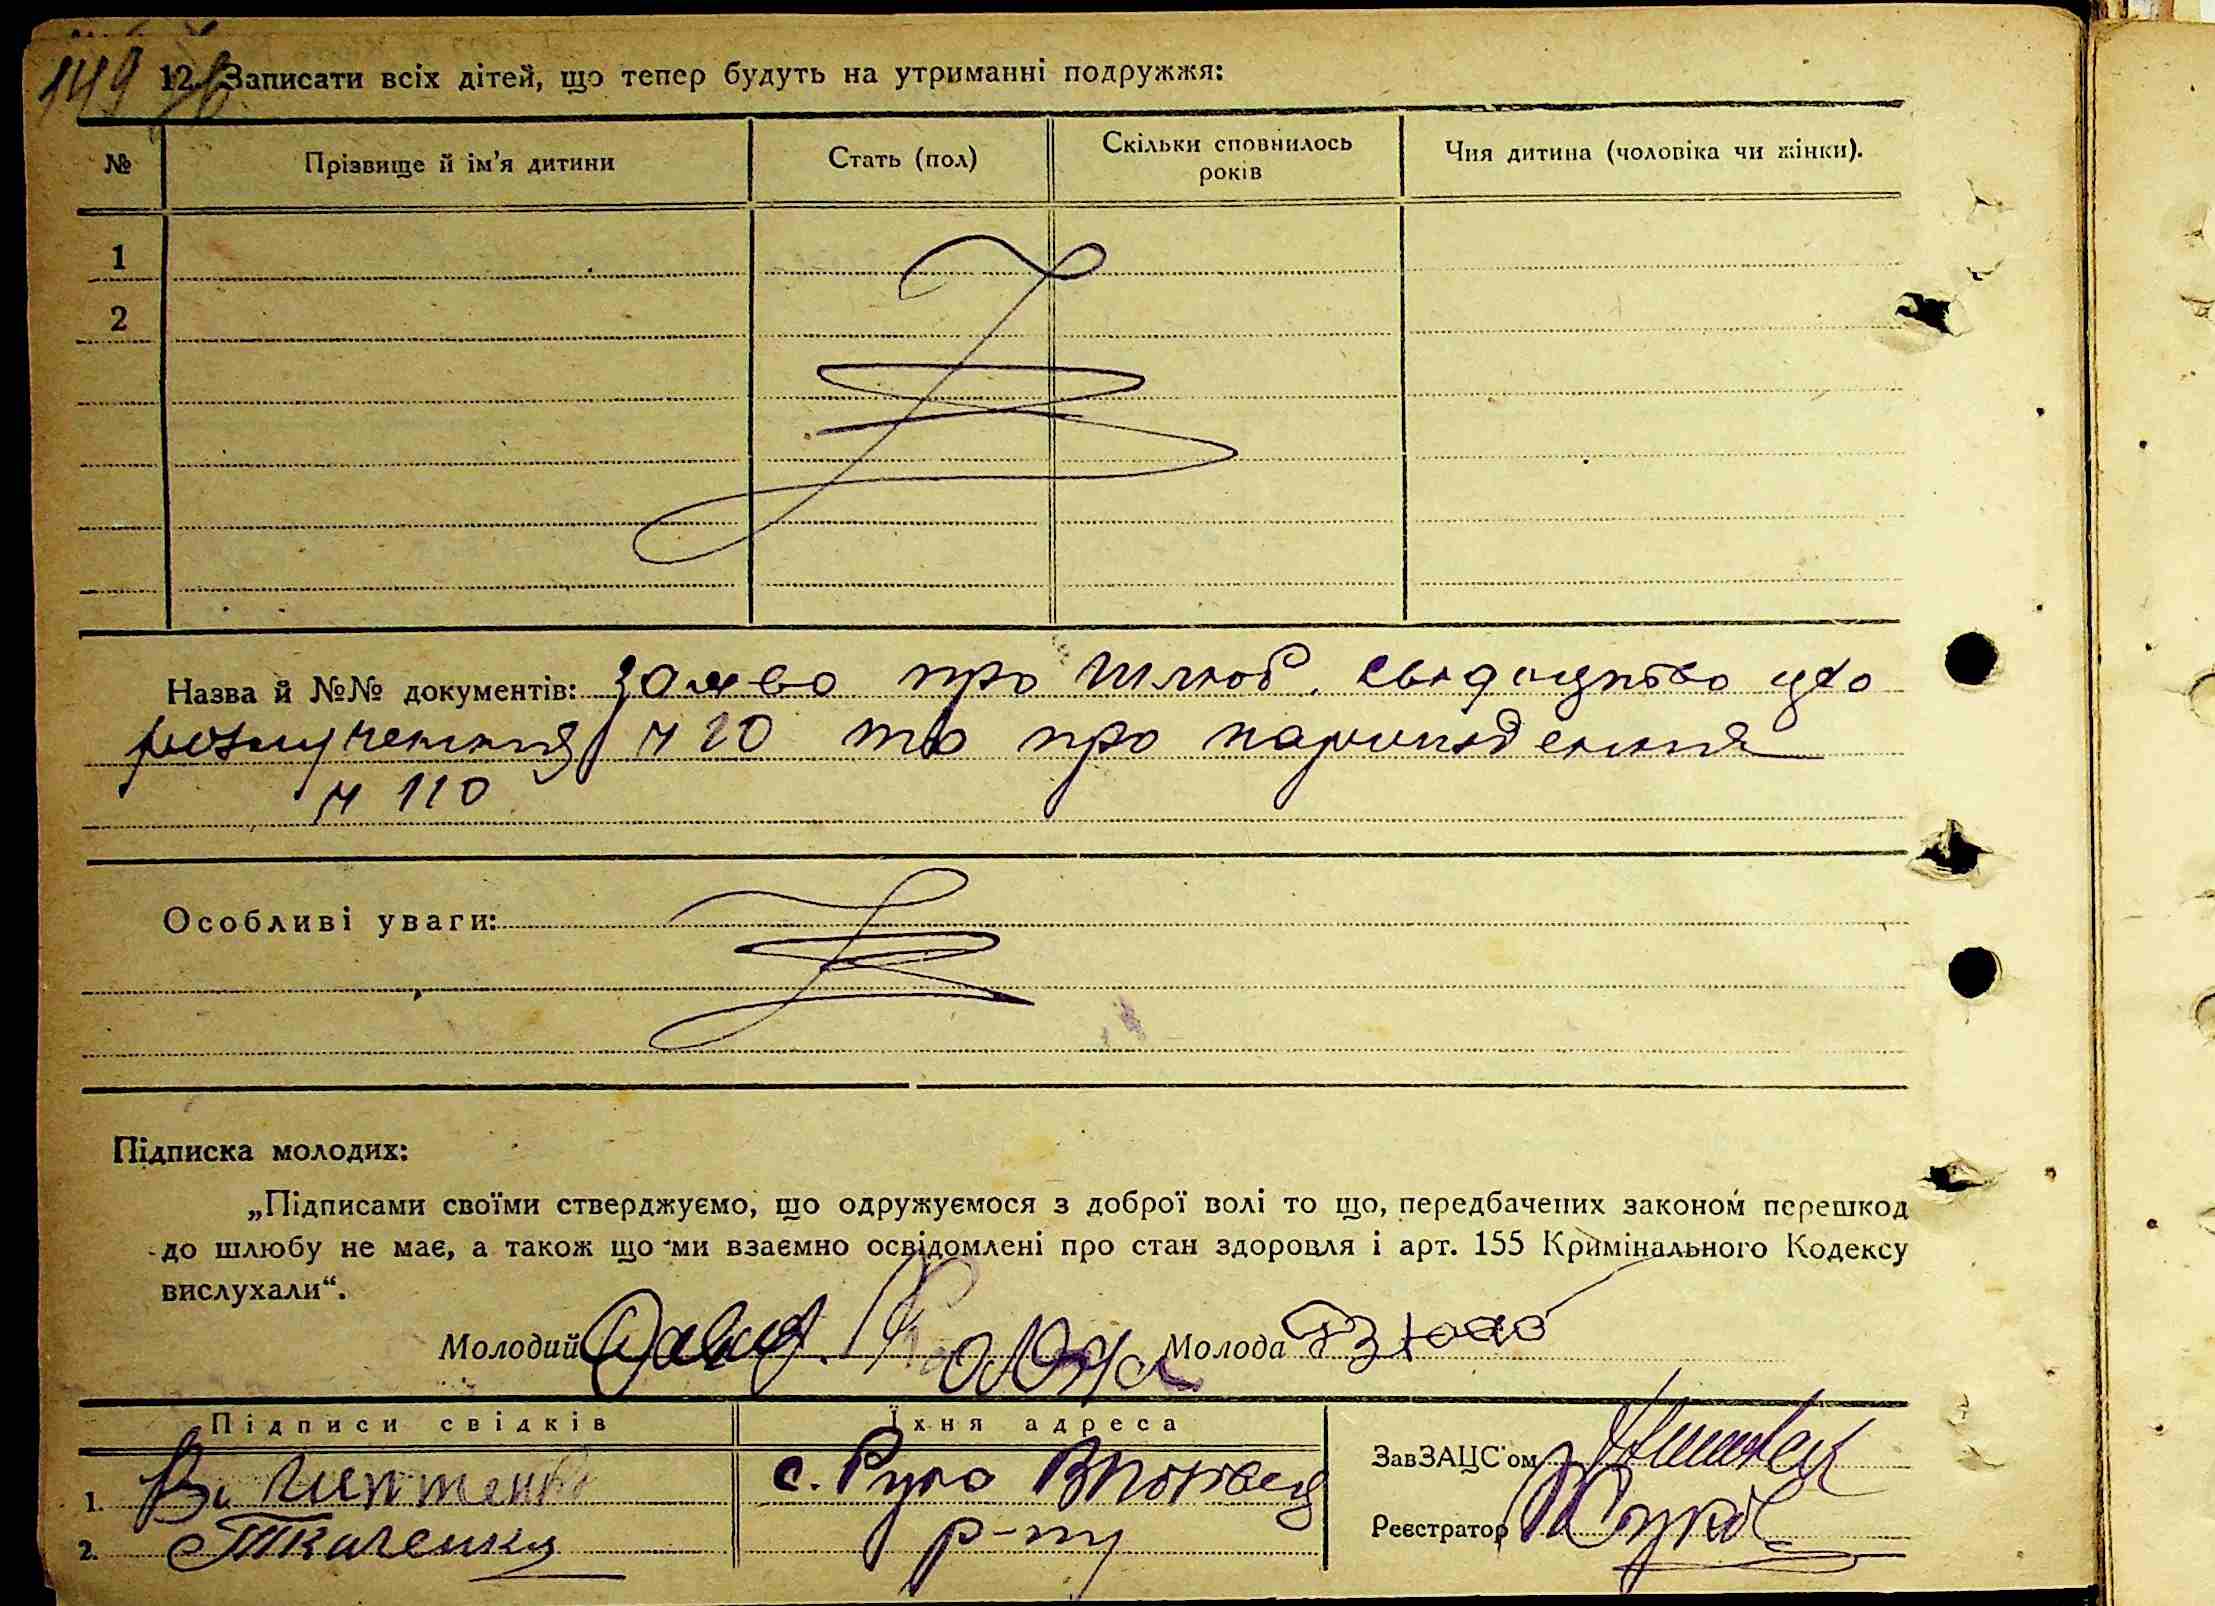 149
12. Записати всіх дітей, що тепер будуть на утриманні подружжя:
№ Прізвище й ім'я дитини Стать (пол) Скільки сповнилось років Чия дитина (чоловіка чи жінки).
1
2
Назва й №№ документів: заява про шлюб. свидоцтво про
розлучення ч 20 та про народження
ч 110
Особливі уваги:
Підписка молодих:
„Підписами своїми стверджуємо, що одружуємося з доброї волі то що, передбачених законом перешкод
до шлюбу не має, а також що ми взаємно освідомлені про стан здоровля і арт. 155 Кримінального Кодексу
вислухали“.
Молодий Молода
Підписи свідків Їхня адреса
ЗавЗАЦС'ом
1. с. Руда
Реєстратор
2. Ткаченко р-ну